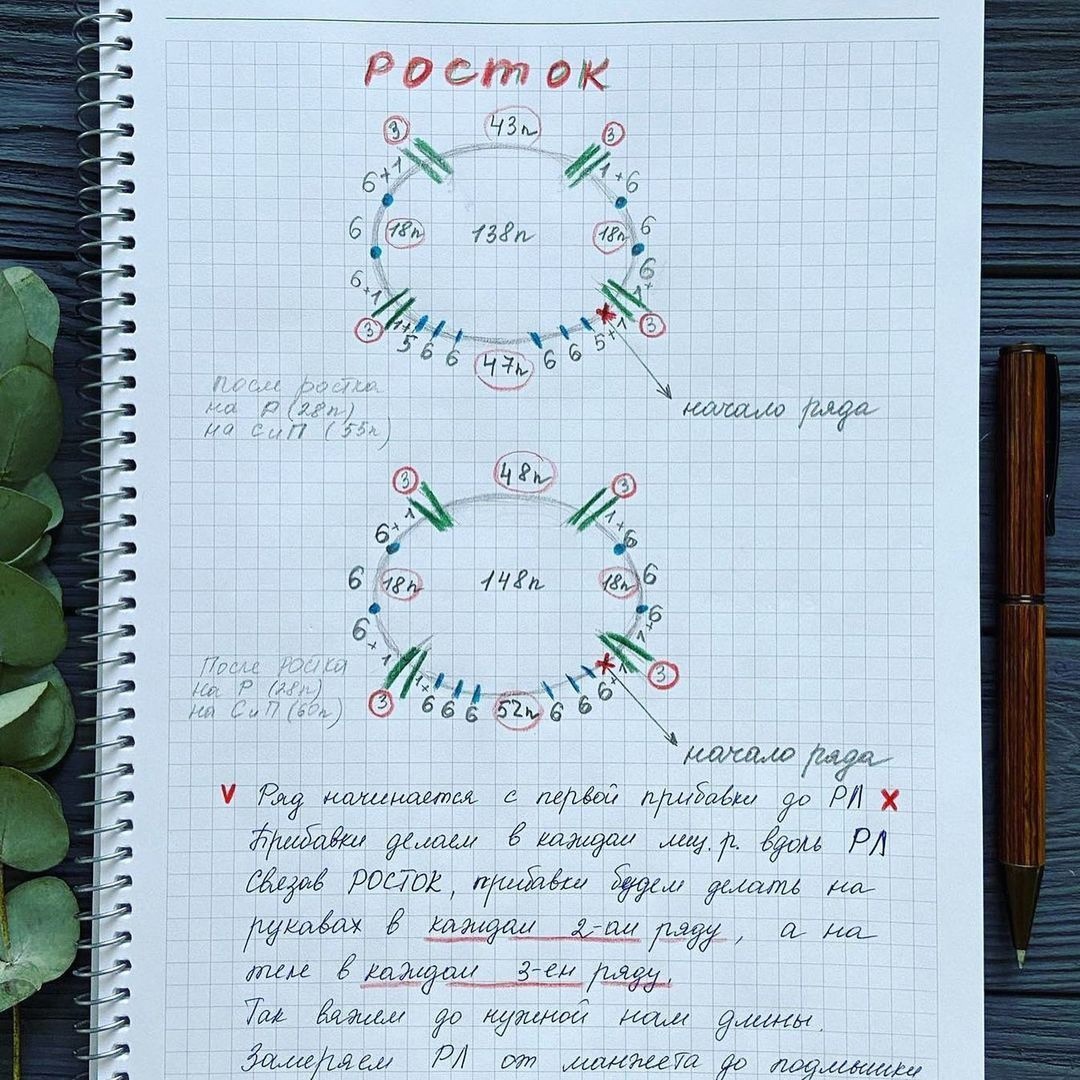 РОСТОК
3 43п 3
6+1 1+6
6 18п 138п 18п 6
6+1 6
1+
3 1+5 6 6 47п 6 6 5+1 3
После ростка
на Р (28п)
на СиП (55п)
начало ряда
3 48п 3
6+1 1+6
6 18п 148п 18п 6
6+1 6
1+
3 1+6 6 6 52п 6 6 6+1 3
После ростка
на Р (28п)
на СиП (60п)
начало ряда
V Ряд начинается с первой прибавки до РЛ X
Прибавки делаем в каждом лиц. р. вдоль РЛ
Связав РОСТОК, прибавки будем делать на
рукавах в каждом 2-ом ряду, а на
теле в каждом 3-ем ряду.
Так вяжем до нужной нам длины.
Замеряем РЛ от манжета до подмышки